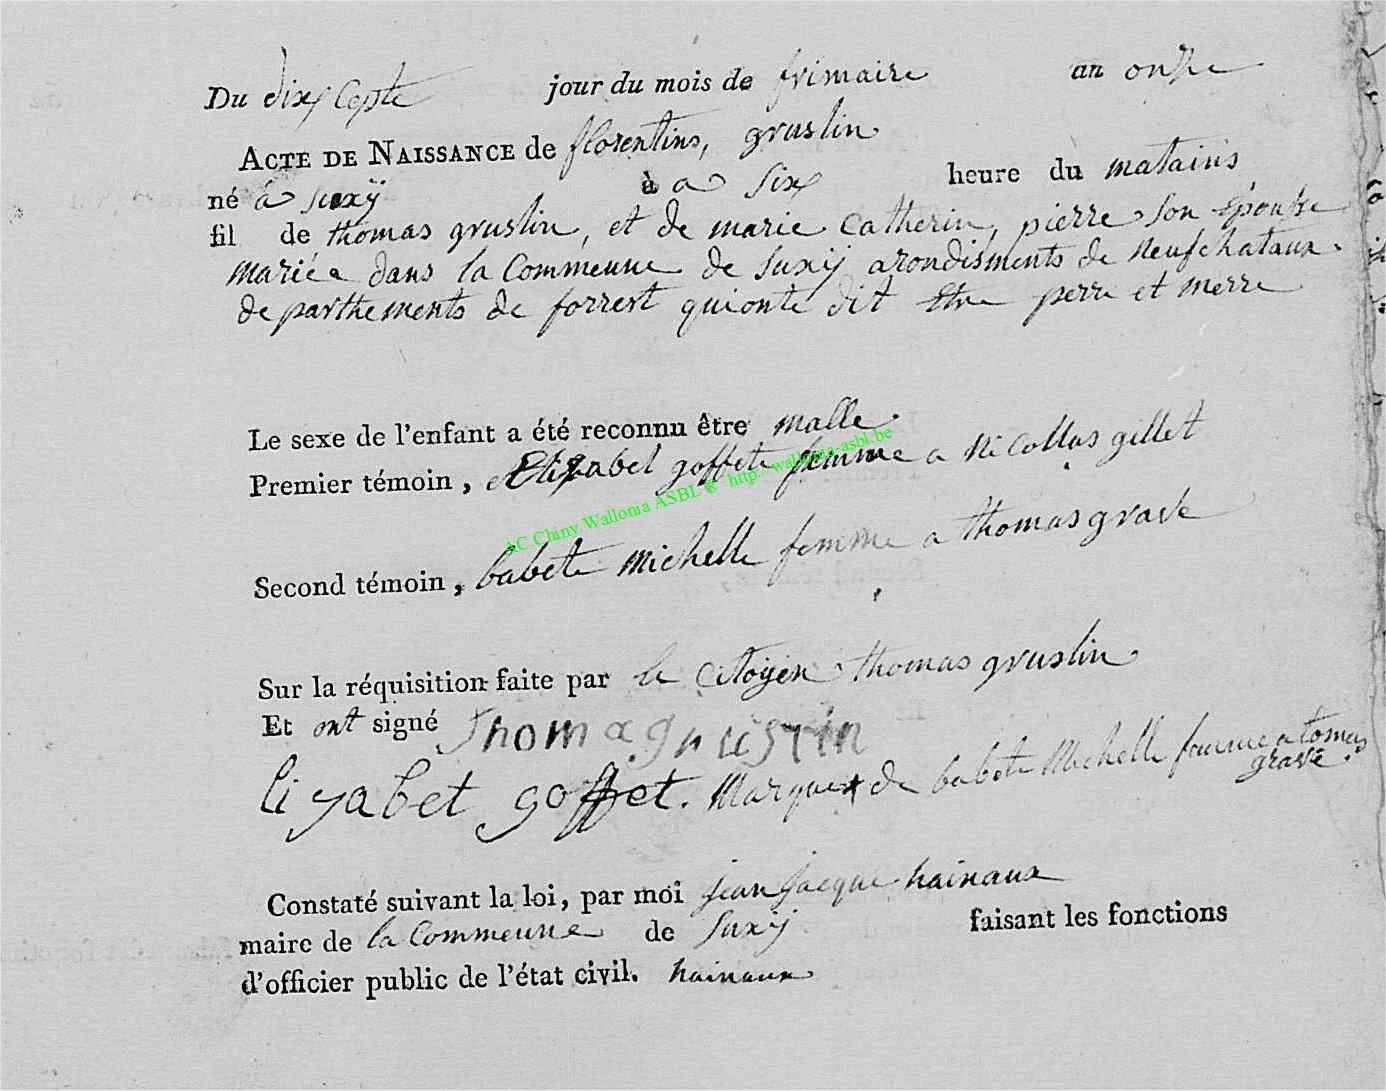 Du dix Cepte jour du mois de frimaire an onze
ACTE DE NAISSANCE de florentins, gruslin
né à suxÿ à a Six heure du matains
fil de thomas gruslin, et de marie Catherin, pierre Son Epouse
mariéa dans la Commeune de Suxÿ arondisments de Neufchataux
de parthements de forrest quionte dit Etre perre et merre
Le sexe de l'enfant a été reconnu être malle
Premier témoin, Elizabel goffete femme a Nicollas gillet
AC Chiny Wallonia ASBL © http://wallonia-asbl.be
Second témoin, babete michelle femme a thomas grave
Sur la réquisition faite par le Citoÿen thomas gruslin
Et ont signé Thomas gruslin
lizabet goffet. Marque + de babete Michelle femme a tomas
grave.
Constaté suivant la loi, par moi jean jacque hainaux
maire de la Commeune de Suxÿ faisant les fonctions
d'officier public de l'état civil. hainaux